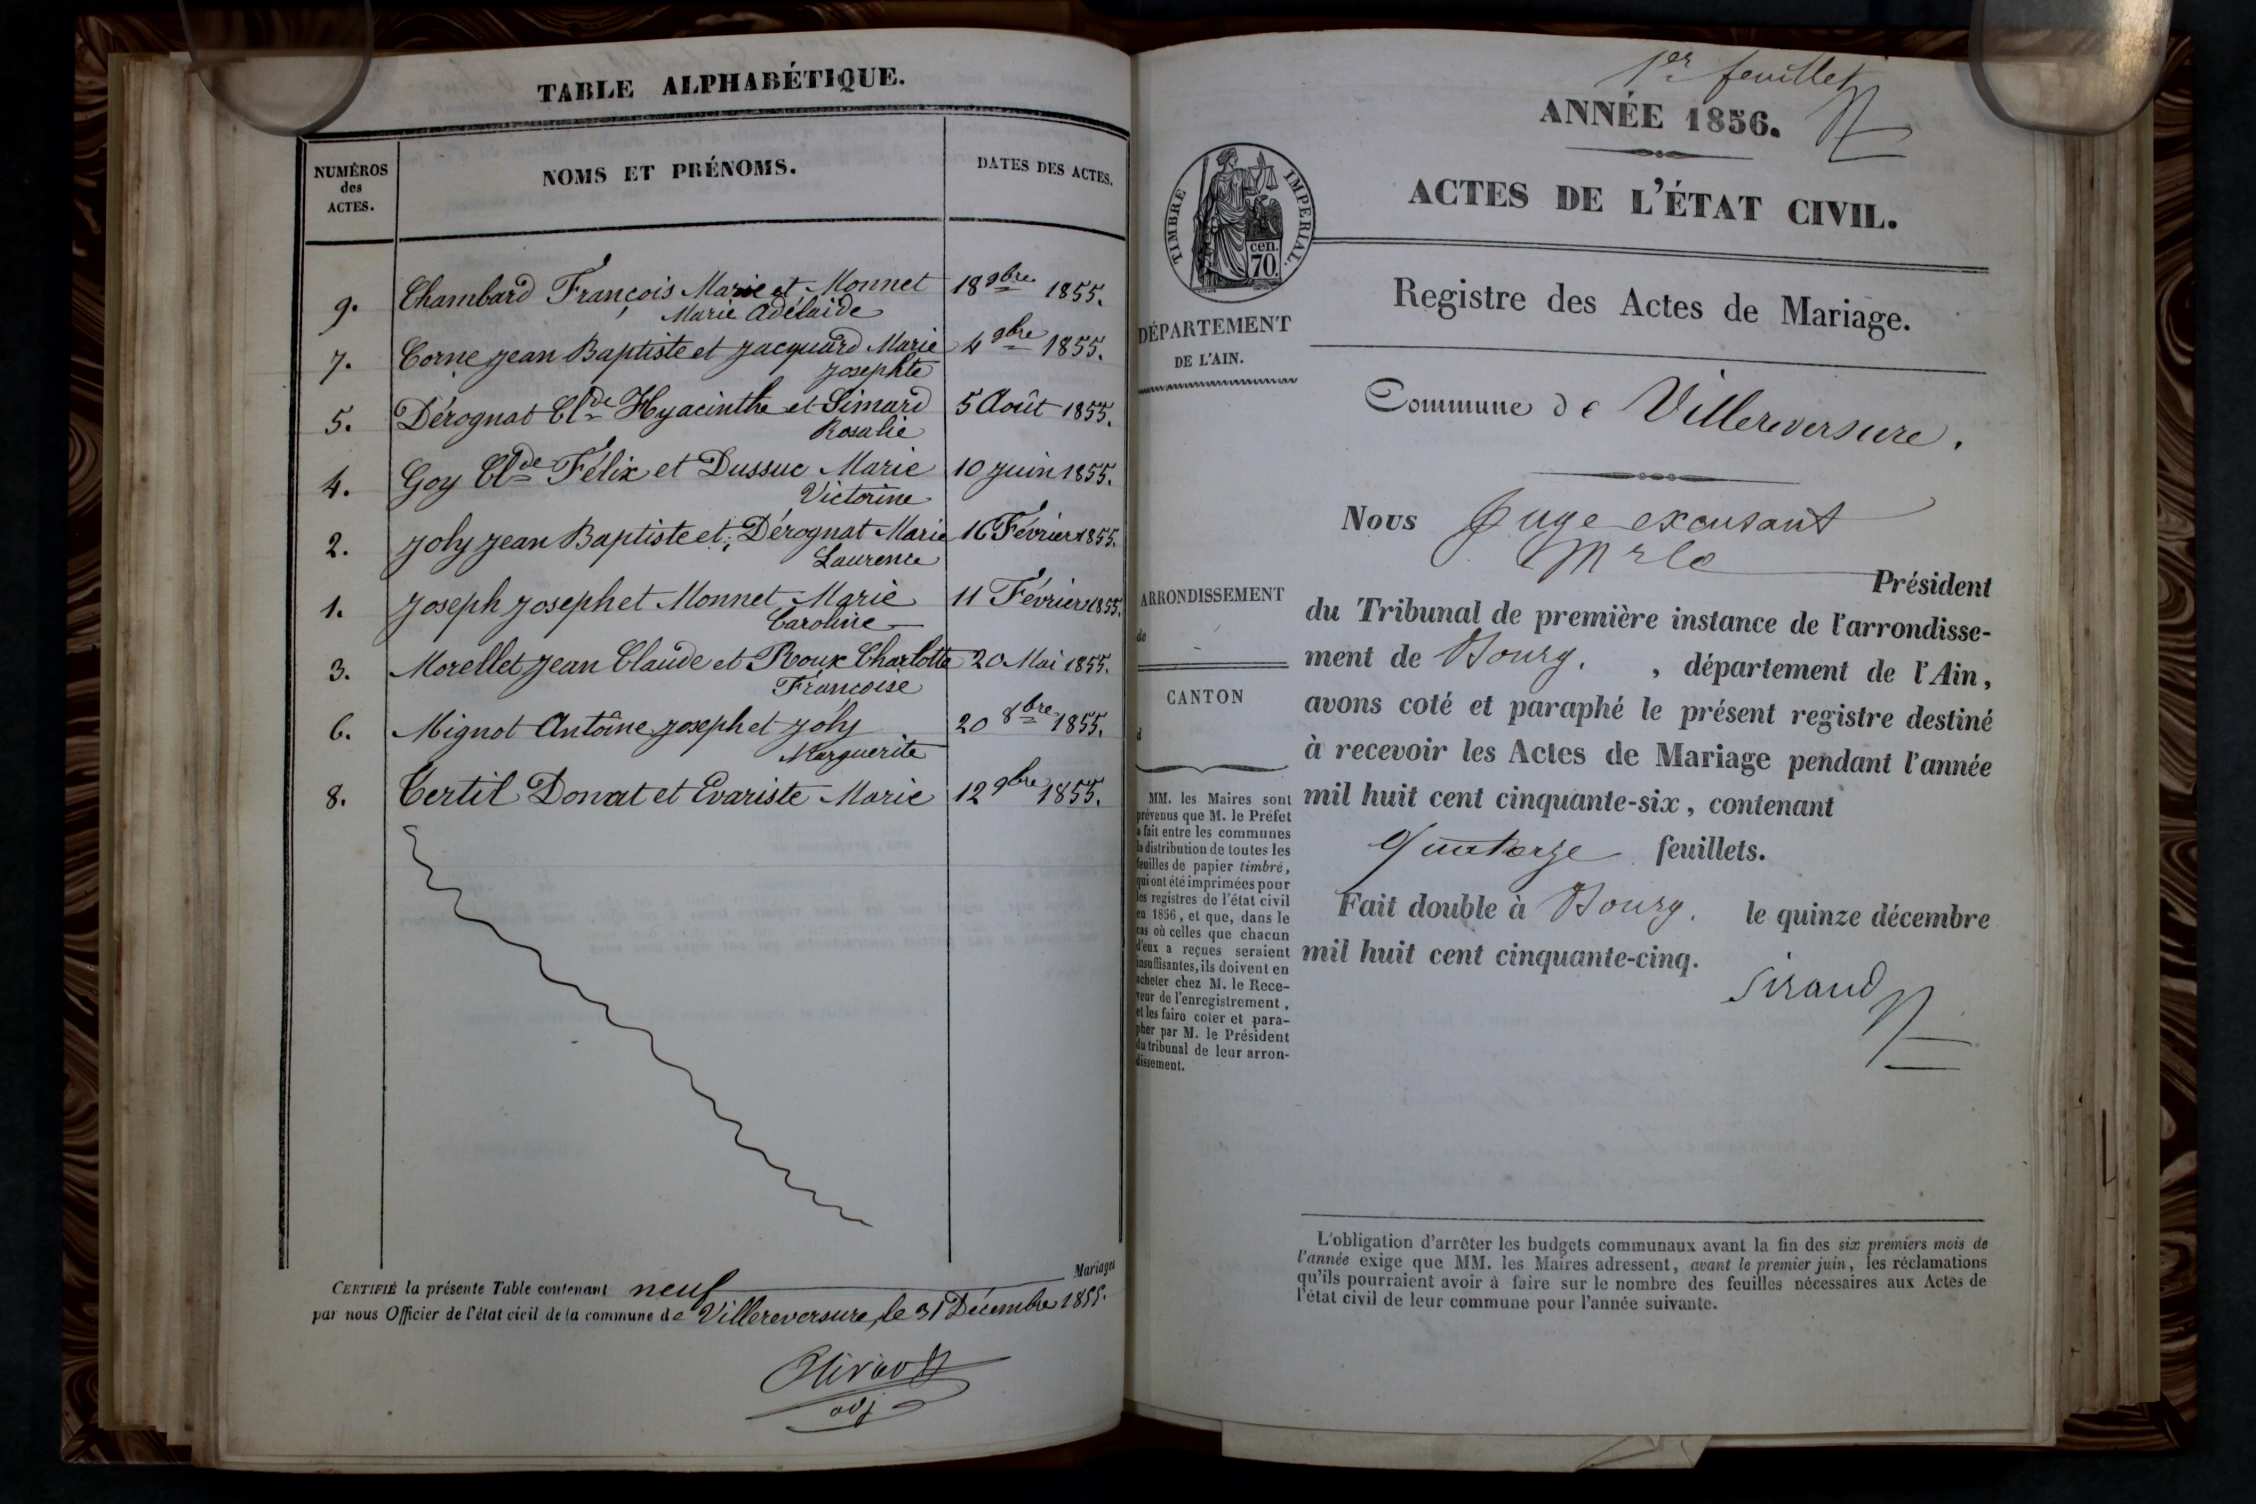 TABLE ALPHABÉTIQUE.
NUMÉROS
des
ACTES.
NOMS ET PRÉNOMS.
DATES DES ACTES.
9. Chambard François Marie et Monnet 18 9bre 1855.
Marie Adélaide
7. Corne jean Baptiste et jacquard Marie 4 9bre 1855.
josephte
5. Dérognat Clde Hyacinthe et Simard 5 Août 1855.
Rosalie
4. Goy Clde Félix et Dussuc Marie 10 juin 1855.
Victorine
2. joly jean Baptiste et, Dérognat Marie 16 Février 1855.
Laurence
1. joseph joseph et Monnet Marie 11 Février 1855.
Caroline
3. Morellet jean Claude et Roux Charlotte 20 Mai 1855.
Françoise
6. Mignot Antoine joseph et joly 20 8bre 1855.
Marguerite
8. Tertil Donat et Evariste Marie 12 9bre 1855.
CERTIFIÉ la présente Table contenant neuf Mariages
par nous Officier de l'état civil de la commune de Villereversure, le 31 Décembre 1855.
adj
1er feuillet
ANNÉE 1856.
ACTES DE L'ÉTAT CIVIL.
TIMBRE IMPERIAL.
cen.
70.
Registre des Actes de Mariage.
DÉPARTEMENT
DE L'AIN.
Commune de Villereversure.
Nous Juge excusant
Mr le
Président
du Tribunal de première instance de l'arrondisse-
ment de Bourg. , département de l'Ain,
avons coté et paraphé le présent registre destiné
à recevoir les Actes de Mariage pendant l'année
mil huit cent cinquante-six, contenant
quatorze feuillets.
Fait double à Bourg. le quinze décembre
mil huit cent cinquante-cinq.
Siraud
ARRONDISSEMENT
de
CANTON
d
MM. les Maires sont
prévenus que M. le Préfet
a fait entre les communes
la distribution de toutes les
feuilles de papier timbré,
qui ont été imprimées pour
les registres de l'état civil
en 1856, et que, dans le
cas où celles que chacun
d'eux a reçues seraient
insuffisantes, ils doivent en
acheter chez M. le Rece-
veur de l'enregistrement,
et les faire coter et para-
pher par M. le Président
du tribunal de leur arron-
dissement.
L'obligation d'arrêter les budgets communaux avant la fin des six premiers mois de
l'année exige que MM. les Maires adressent, avant le premier juin, les réclamations
qu'ils pourraient avoir à faire sur le nombre des feuilles nécessaires aux Actes de
l'état civil de leur commune pour l'année suivante.